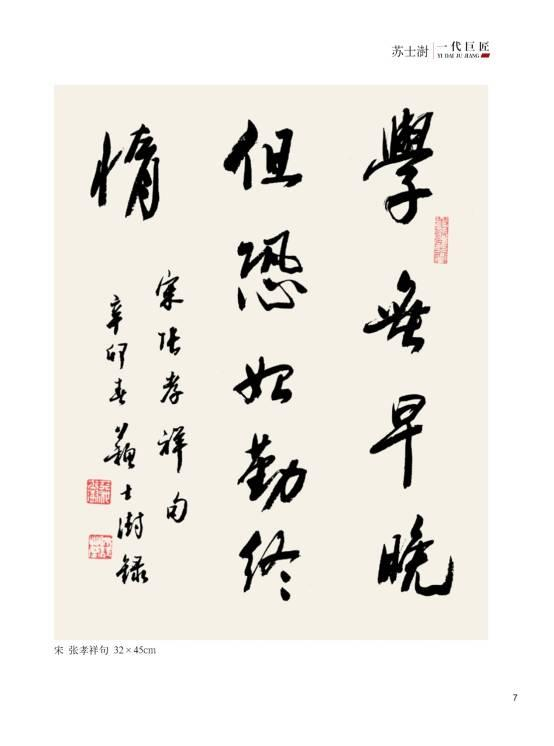 苏士澍 一代巨匠
YI DAI JU JIANG
學無早晚
但恐始勤終
惰
宋張孝祥句
辛卯春蘇士澍錄
宋 张孝祥句 32×45cm
7